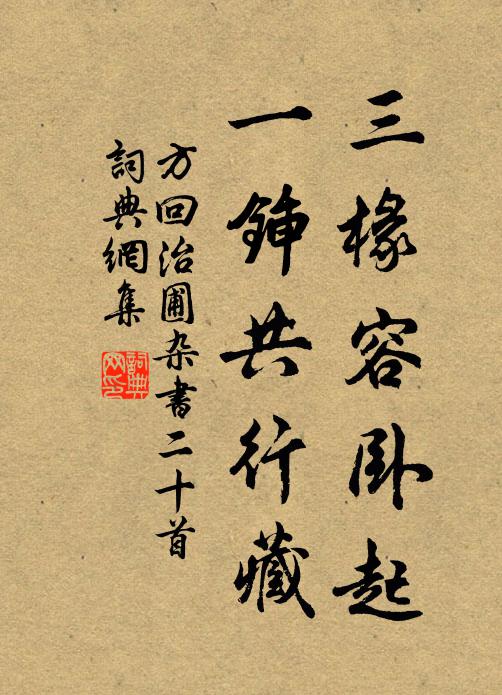 三椽容卧起
一鉮共行藏
方回治圃杂書二十首
詞典網集
詞典网印